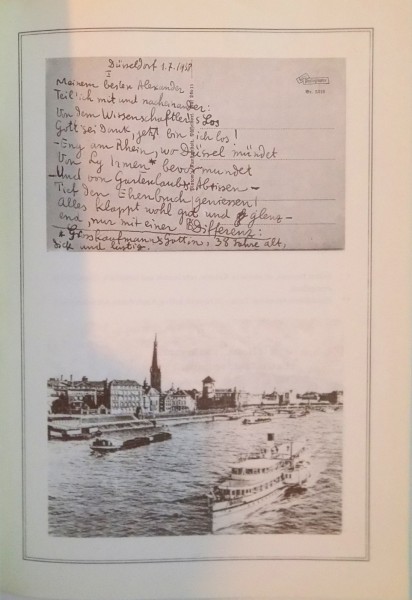 Düsseldorf 1.7./1958
I
Meinem besten Alexander
Teil ich mit und nacheinander:
Von dem Wissenschaftler Los
Gott sei Dank, jetzt bin ich los!
- Eng am Rhein, wo Düssel mündet
Von Ly Irmen* bevormundet
- Und von Gartenlaubt
Tut den Ehenbuch geniessen!
Alles klappt wohl gut und glänz-
end, nur mit einer Differenz:
* Grosskaufmanns Gattin, 38 Jahre alt,
dick und lustig.